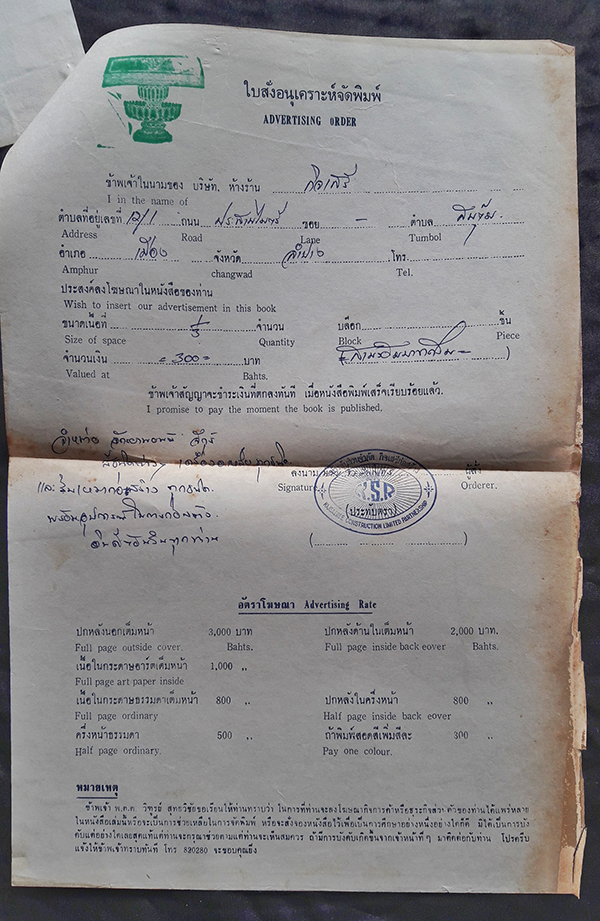 ใบสั่งอนุเคราะห์จัดพิมพ์
ADVERTISING ORDER
ข้าพเจ้าในนามของ บริษัท, ห้างร้าน กิจเสรี
I in the name of
ตำบลที่อยู่เลขที่ ๑๒/1 ถนน ประสานไมตรี ซอย - ตำบล สบตุ๋ย
Address Road Lane Tumbol
อำเภอ เมือง จังหวัด ลำปาง โทร.
Amphur changwad Tel.
ประสงค์ลงโฆษณาในหนังสือของท่าน
Wish to insert our advertisement in this book
ขนาดเนื้อที่ จำนวน บล๊อก ชิ้น
Size of space Quantity Block Piece
จำนวนเงิน = 300 = บาท
Valued at Bahts.
ข้าพเจ้าสัญญาจะชำระเงินที่ตกลงทันที เมื่อหนังสือพิมพ์เสร็จเรียบร้อยแล้ว.
I promise to pay the moment the book is published.
ลงนาม ผู้สั่ง
Signature Orderer.
K.S.R
(ประทับตรา)
CONSTRUCTION LIMITED PARTNERSHIP
และรับเหมาก่อสร้าง ทุกชนิด
อัตราโฆษณา Advertising Rate
ปกหลังนอกเต็มหน้า 3,000 บาท ปกหลังด้านในเต็มหน้า 2,000 บาท.
Full page outside cover Bahts. Full page inside back eover Bahts.
เนื้อในกระดาษอาร์ตเต็มหน้า 1,000 ,,
Full page art paper inside
เนื้อในกระดาษธรรมดาเต็มหน้า 800 ,, ปกหลังในครึ่งหน้า 800 ,,
Full page ordinary Half page inside back eover
ครึ่งหน้าธรรมดา 500 ,, ถ้าพิมพ์สอดสีเพิ่มสีละ 300 ,,
Half page ordinary. Pay one colour.
หมายเหตุ
ข้าพเจ้า พ.ต.ต. วิฑูรย์ สุทธวิชัยขอเรียนให้ท่านทราบว่า ในการที่ท่านจะลงโฆษณากิจการค้าหรือธุรกิจส่วนตัวของท่านได้แพร่หลาย
ในหนังสือเล่มนี้หรือจะเป็นการช่วยเหลือในการจัดพิมพ์ หรือจะสั่งจองหนังสือไว้เพื่อเป็นการศึกษาอย่างหนึ่งอย่างใดก็ดี มิได้เป็นการบัง
คับแต่อย่างใดเลยสุดแท้แต่ท่านจะกรุณาช่วยตามแต่ท่านจะเห็นสมควร ถ้ามีการบังคับเกิดขึ้นจากเจ้าหน้าที่ๆ มาติดต่อกับท่าน โปรดรีบ
แจ้งให้ข้าพเจ้าทราบทันที โทร 820280 จะขอบคุณยิ่ง